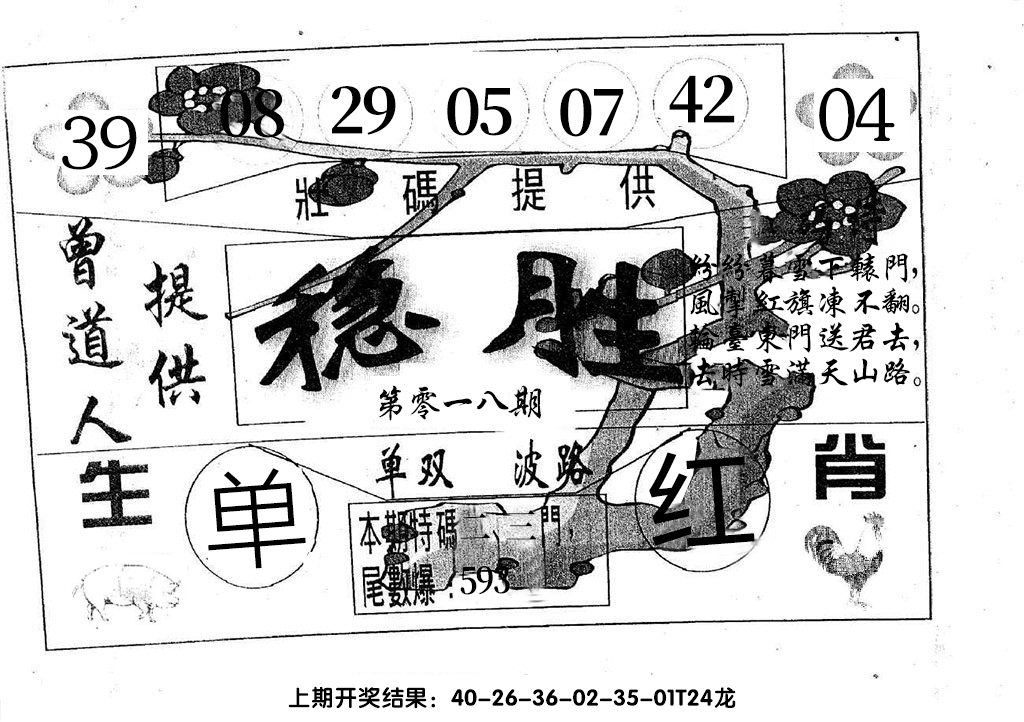 39 08 29 05 07 42 04
壯碼提供
特
曾道人
提供
稳胜
第零一八期
紛紛暮雪下轅門，
風掣紅旗凍不翻。
輪臺東門送君去，
去時雪滿天山路。
单双 波路
生肖
单
红
本期特碼二、三門，
尾數爆：593
上期开奖结果：40-26-36-02-35-01T24龙